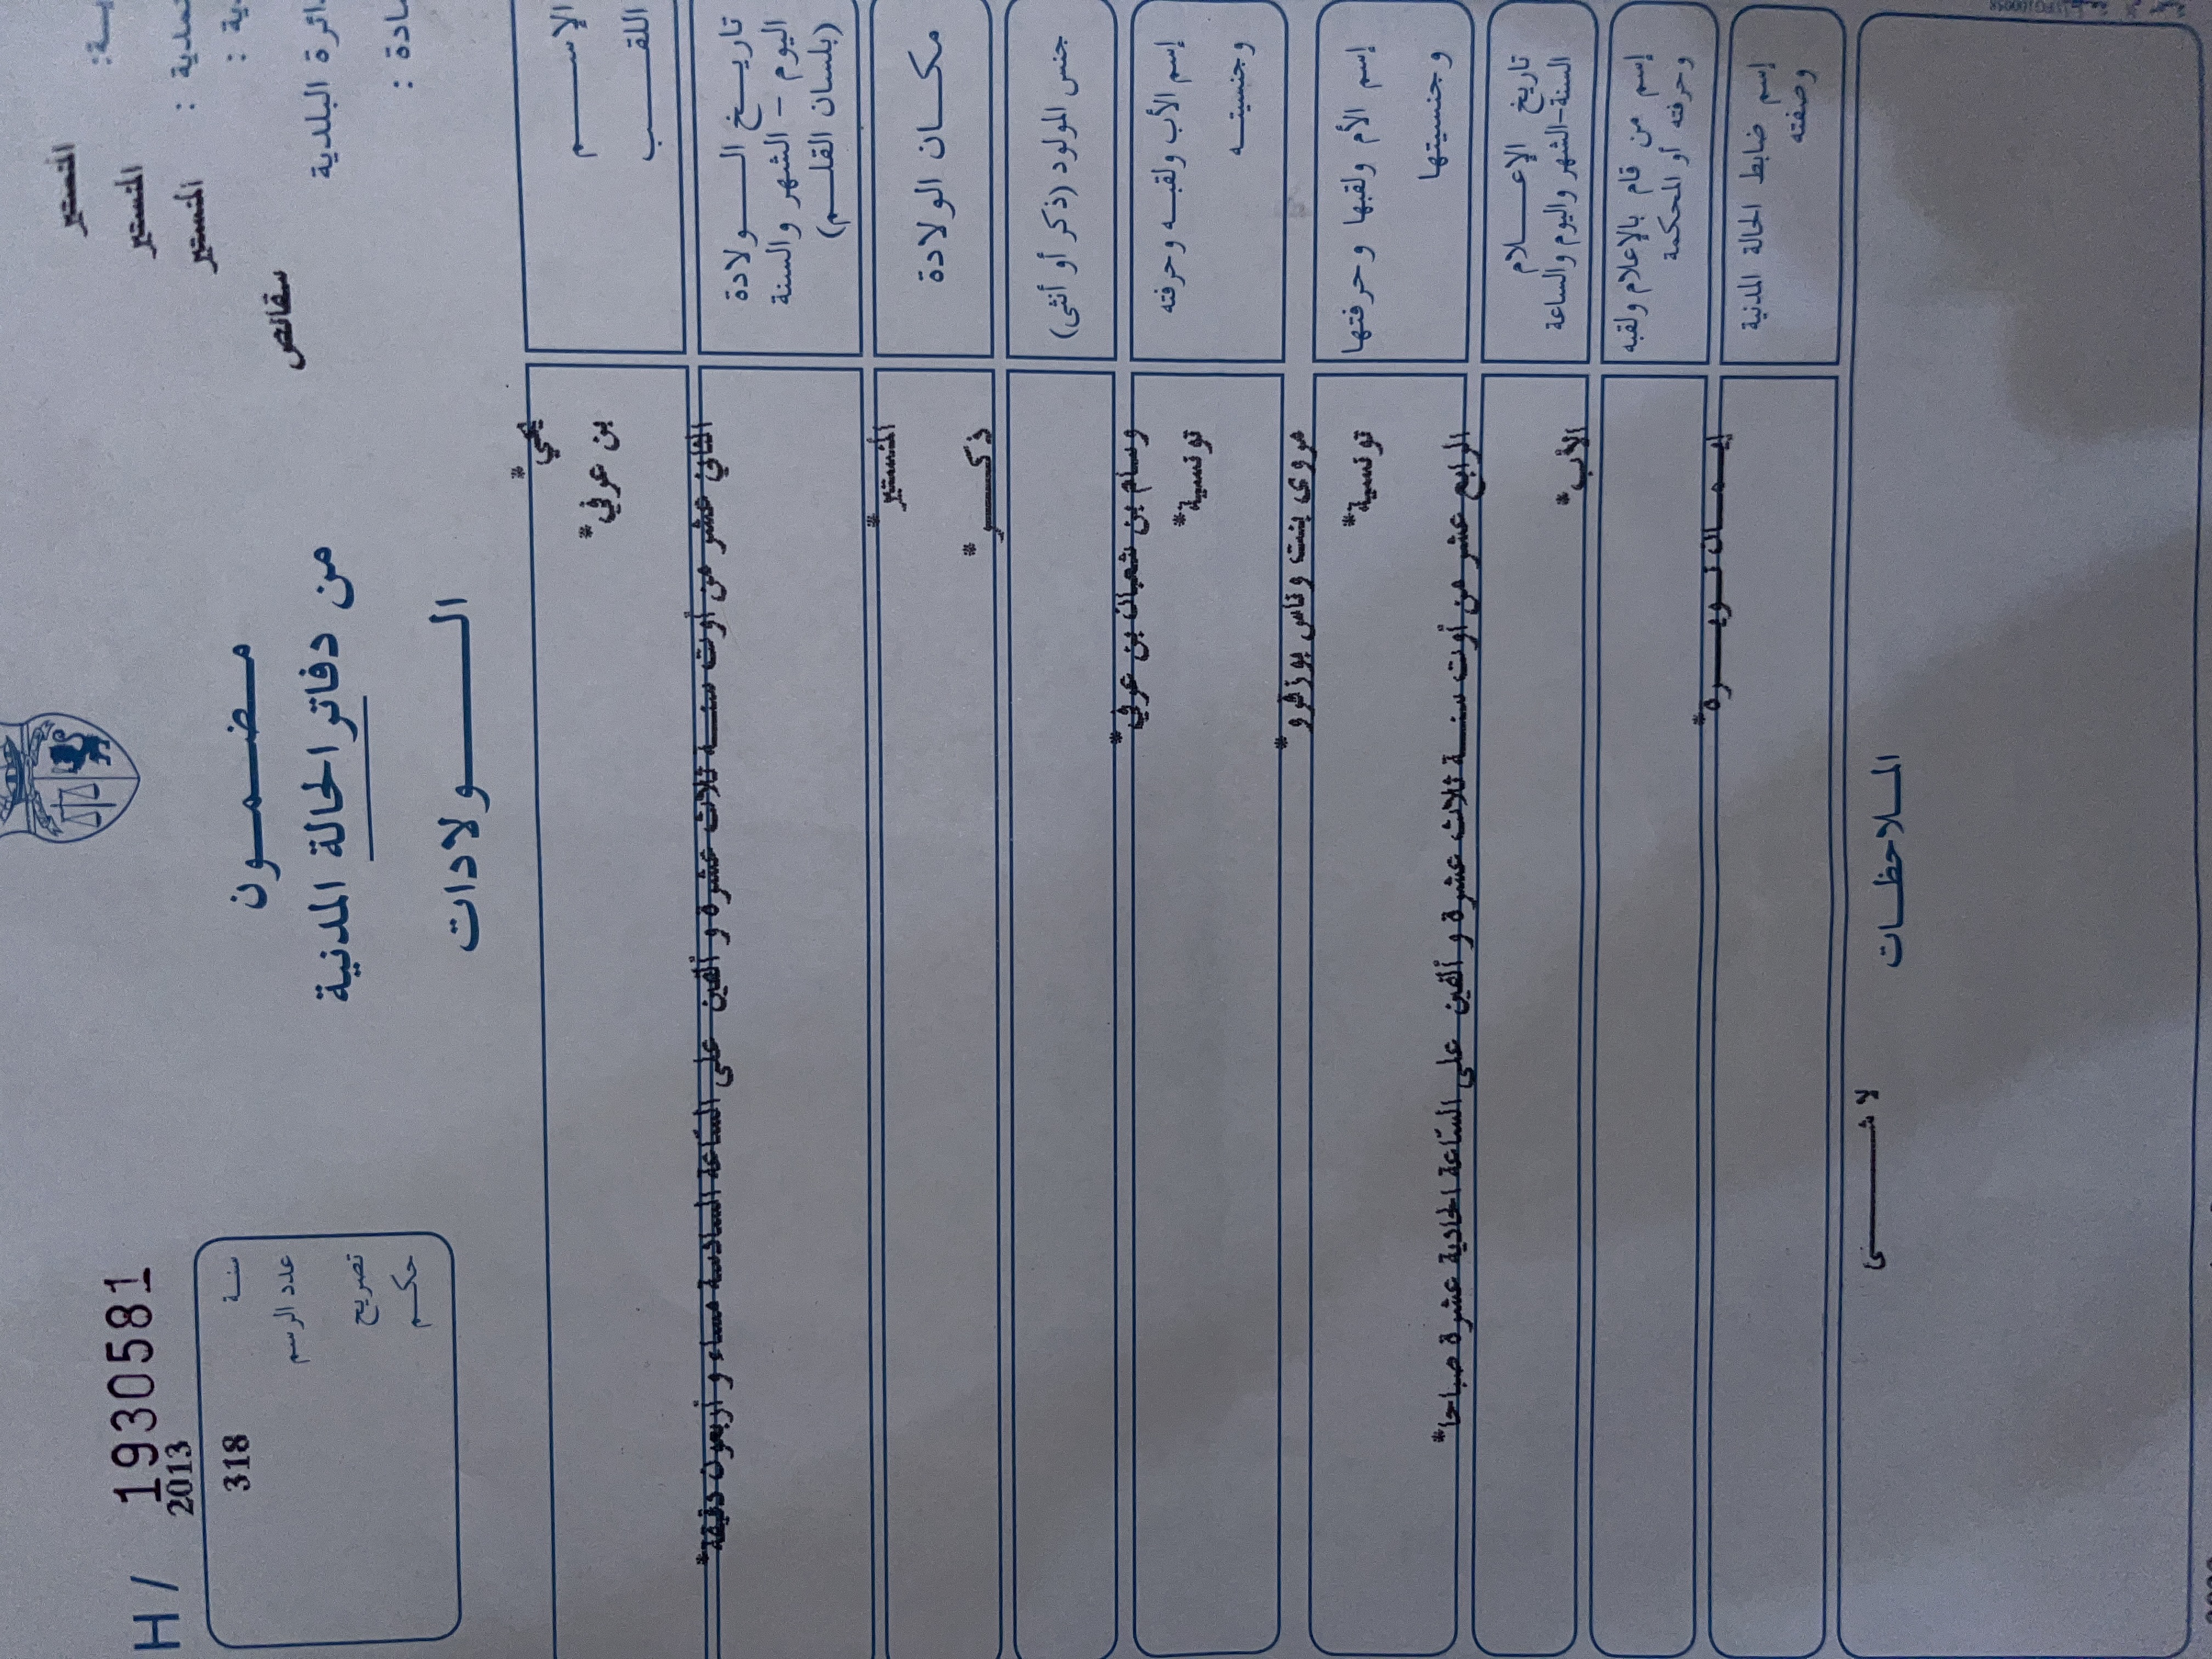 H / 1930581
2013
318
سنة
عدد الرسم
تصريح
حكم
مضمون
من دفاتر الحالة المدنية
الولادات
المنستير
المنستير
المنستير
سقانص
ائرة البلدية
الإسم
اللقب
يحي*
بن عرفي*
تاريخ الولادة
اليوم - الشهر والسنة
(بلسان القلم)
الثاني عشر من أوت سنة ثلاث عشرة و ألفين على الساعة السادسة مساء و أربعون دقيقة*
مكان الولادة
المنستير*
جنس المولود (ذكر أو أنثى)
ذكر*
إسم الأب ولقبه وحرفته
وجنسيته
وسام بن شعبان بن عرفي*
تونسية*
إسم الأم ولقبها وحرفتها
وجنسيتها
مروى بنت وناس بوزقرو*
تونسية*
تاريخ الإعلام
السنة-الشهر واليوم والساعة
الرابع عشر من أوت سنة ثلاث عشرة و ألفين على الساعة الحادية عشرة صباحا*
إسم من قام بالإعلام ولقبه
وحرفته أو المحكمة
الأب*
إسم ضابط الحالة المدنية
وصفته
إيمان نويرة*
الملاحظات
لا شئ